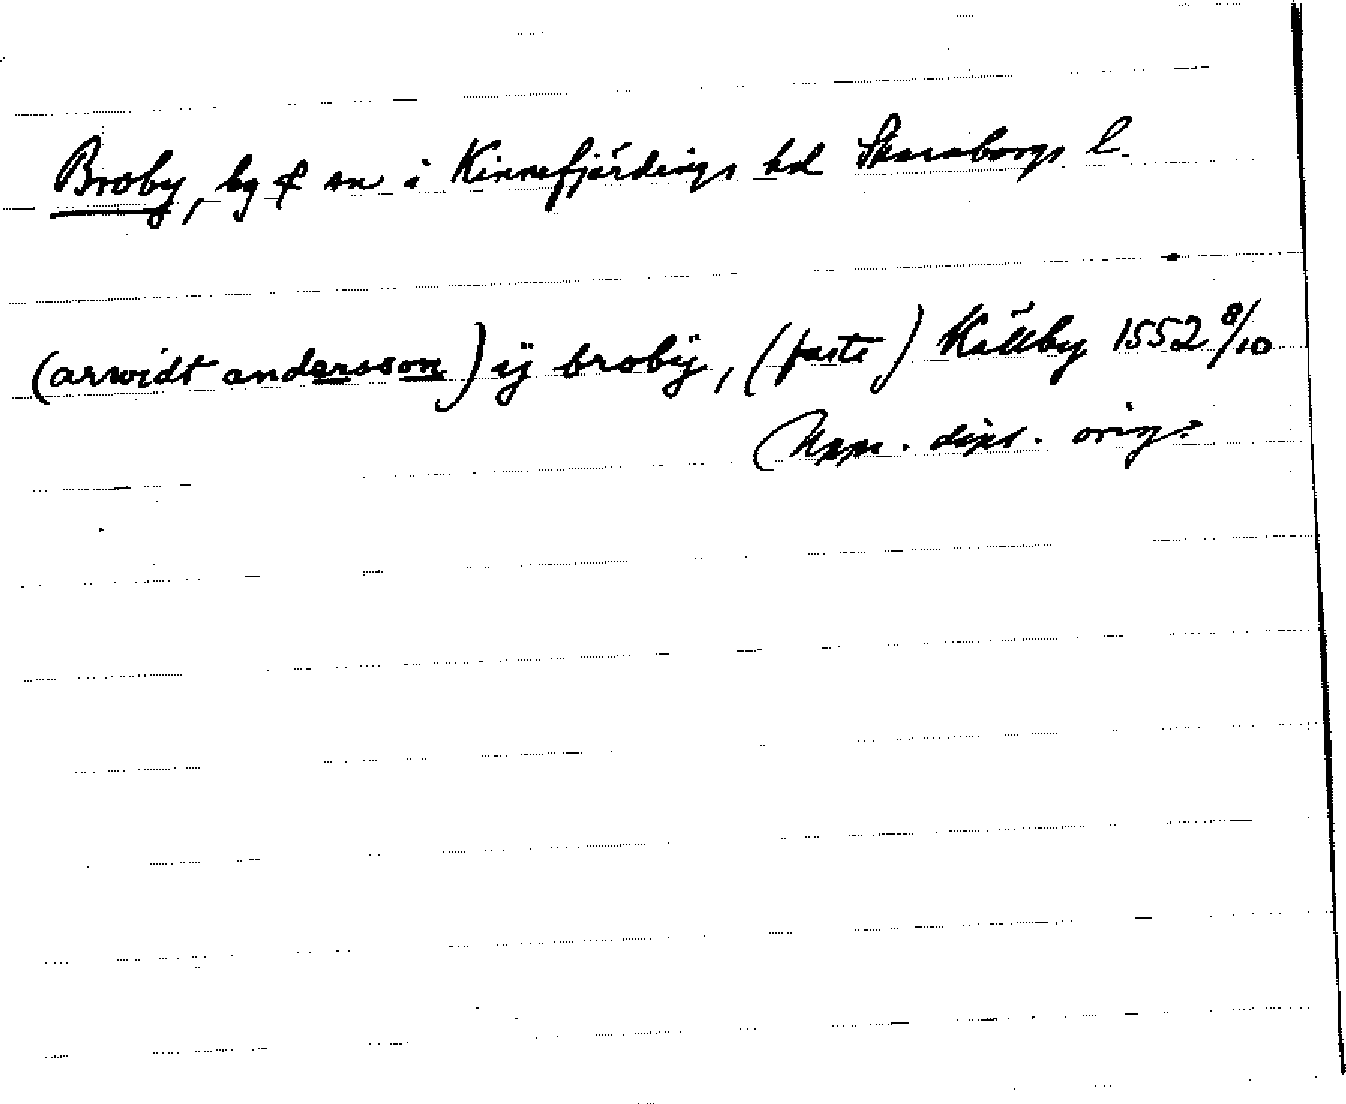 Broby, by & sn i Kinnefjärdings hd Skaraborgs l.
(arwidt andersson) ij brobÿ, (faste) Källby 1552 8/10
dipl. orig.